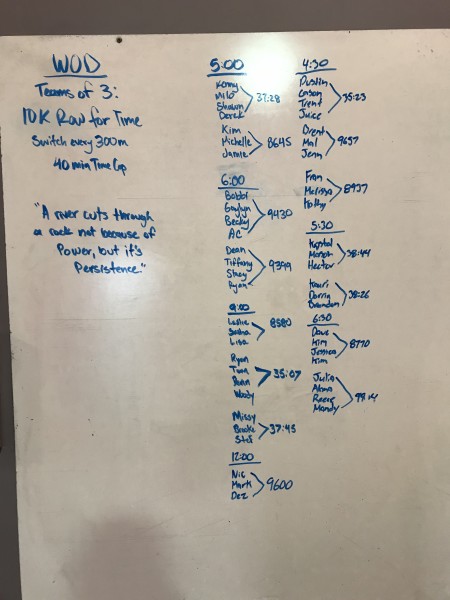 WOD
Teams of 3:
10K Row for Time
Switch every 300m
40 min Time Cap
"A river cuts through
a rock not because of
Power, but it's
Persistence"
5:00
Kenny
Milo
Shawn
Derek
37:28
Kim
Michelle
Jamie
8645
6:00
Bobbi
Gaylyn
Becky
AC
9430
Dean
Tiffany
Stacy
Ryan
9399
9:00
Leslie
Sasha
Lisa
8580
Ryan
Tom
Woody
35:07
Missy
Brooke
Staś
37:45
12:00
Nic
Mark
Dez
9600
4:30
Dustin
Cason
Trent
Juice
35:23
Brent
Mal
Jenn
9657
Fran
Melissa
Kolby
8937
5:30
Krystal
Hector
38:44
Kauri
Darrin
Brandon
38:26
6:30
Dave
Kim
Jessica
Kim
8770
Julia
Reece
Mandy